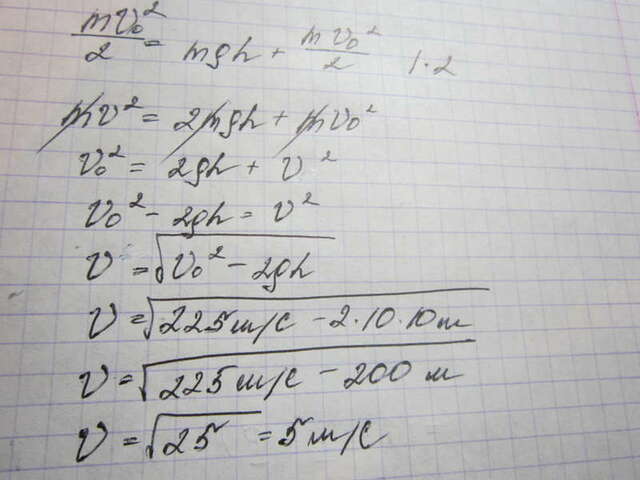 mv₀²/2 = mgh + mv₀²/2 1·2
mv² = 2mgh + mv₀²
v₀² = 2gh + v²
v₀² - 2gh = v²
v = √(v₀² - 2gh)
v = √(225 м/с - 2·10·10 м)
v = √(225 м/с - 200 м)
v = √25 = 5 м/с